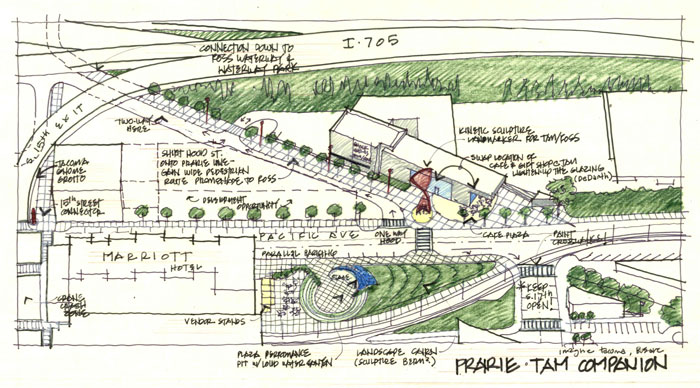 I-705
CONNECTION DOWN TO
FOSS WATERWAY &
WATERWAY PARK
S. 15TH EXIT
TWO-WAY
HERE
TACOMA
GNOME
GROTTO
15TH STREET
CONNECTOR
SHIFT HOOD ST.
ONTO PRAIRIE LINE -
GAIN WIDE PEDESTRIAN
ROUTE PROMENADE TO FOSS
DEVELOPMENT
OPPORTUNITY
KINETIC SCULPTURE
LANDMARKER FOR TAM/FOSS
SWAP LOCATION OF
CAFE & GIFT SHOP @ TAM
LIGHTEN UP THE GLAZING
PACIFIC AVE
ONE WAY
HOOD
CAFE PLAZA
PAINT
CROSSWALKS!
MARRIOTT
HOTEL
PARALLEL PARKING
STAGE
KEEP
S. 17TH
OPEN!
VENDOR STANDS
PLAZA PERFORMANCE
PIT W/ LOUD WATER
LANDSCAPE CAIRN
(SCULPTURE BERM?)
imagine tacoma,
PRAIRIE · TAM COMPANION